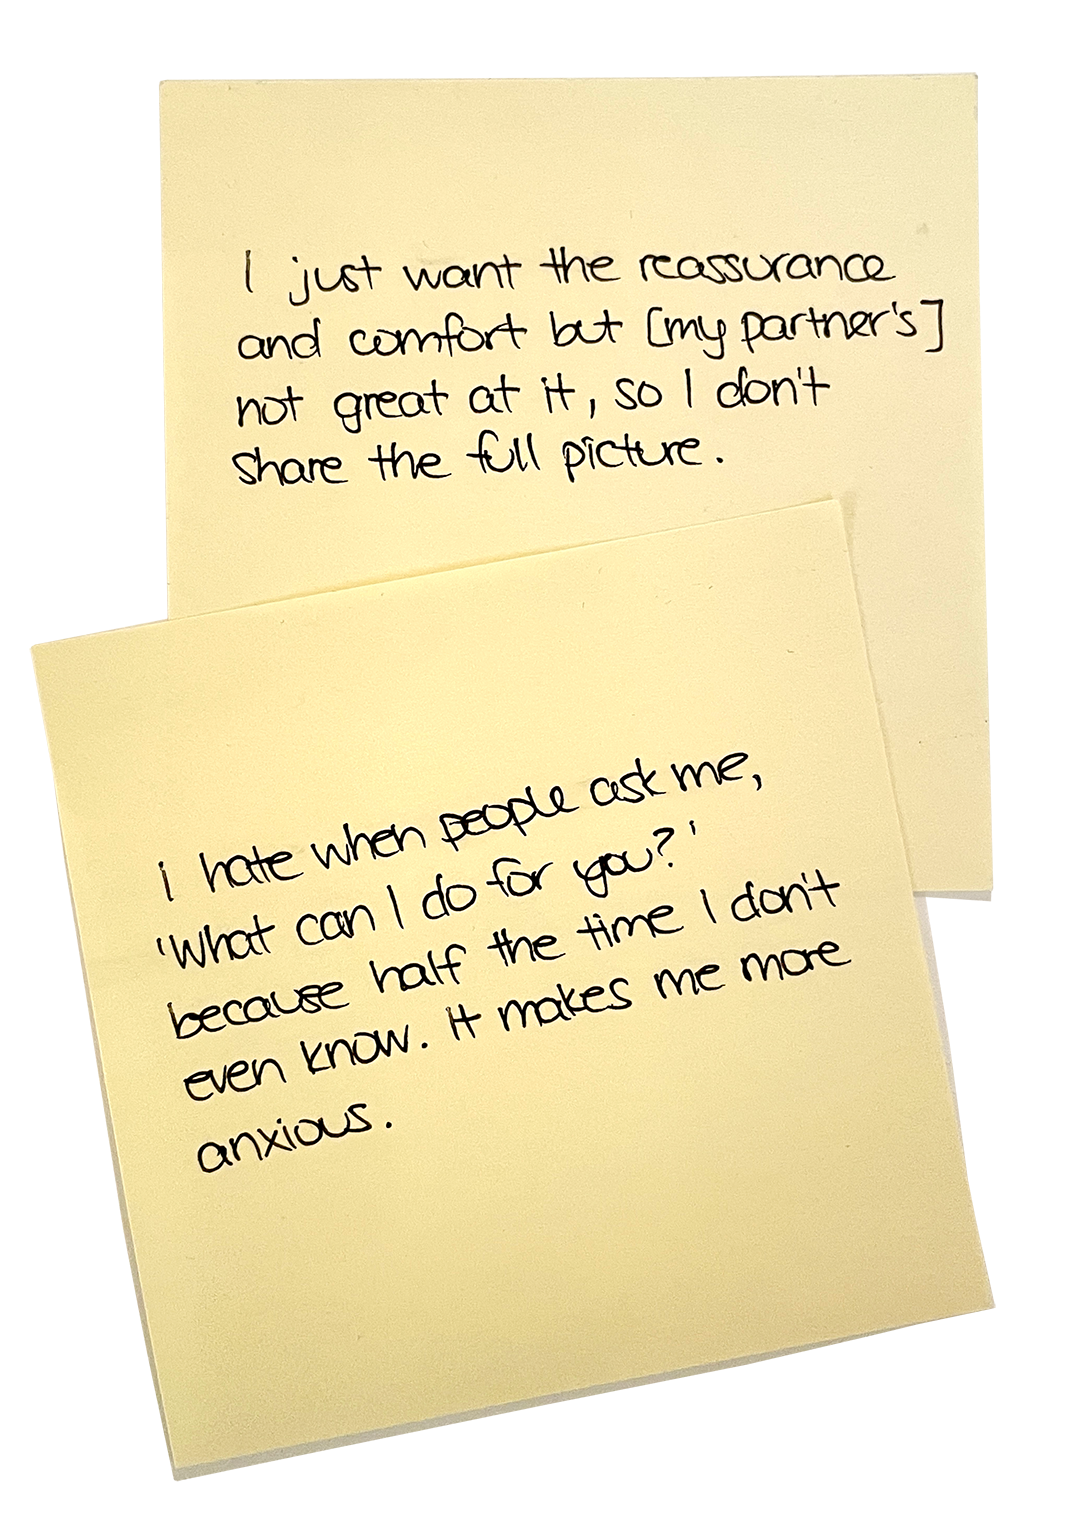 I just want the reassurance
and comfort but [my partner's]
not great at it, so I don't
share the full picture.
i hate when people ask me,
'What can I do for you?'
because half the time I don't
even know. It makes me more
anxious.